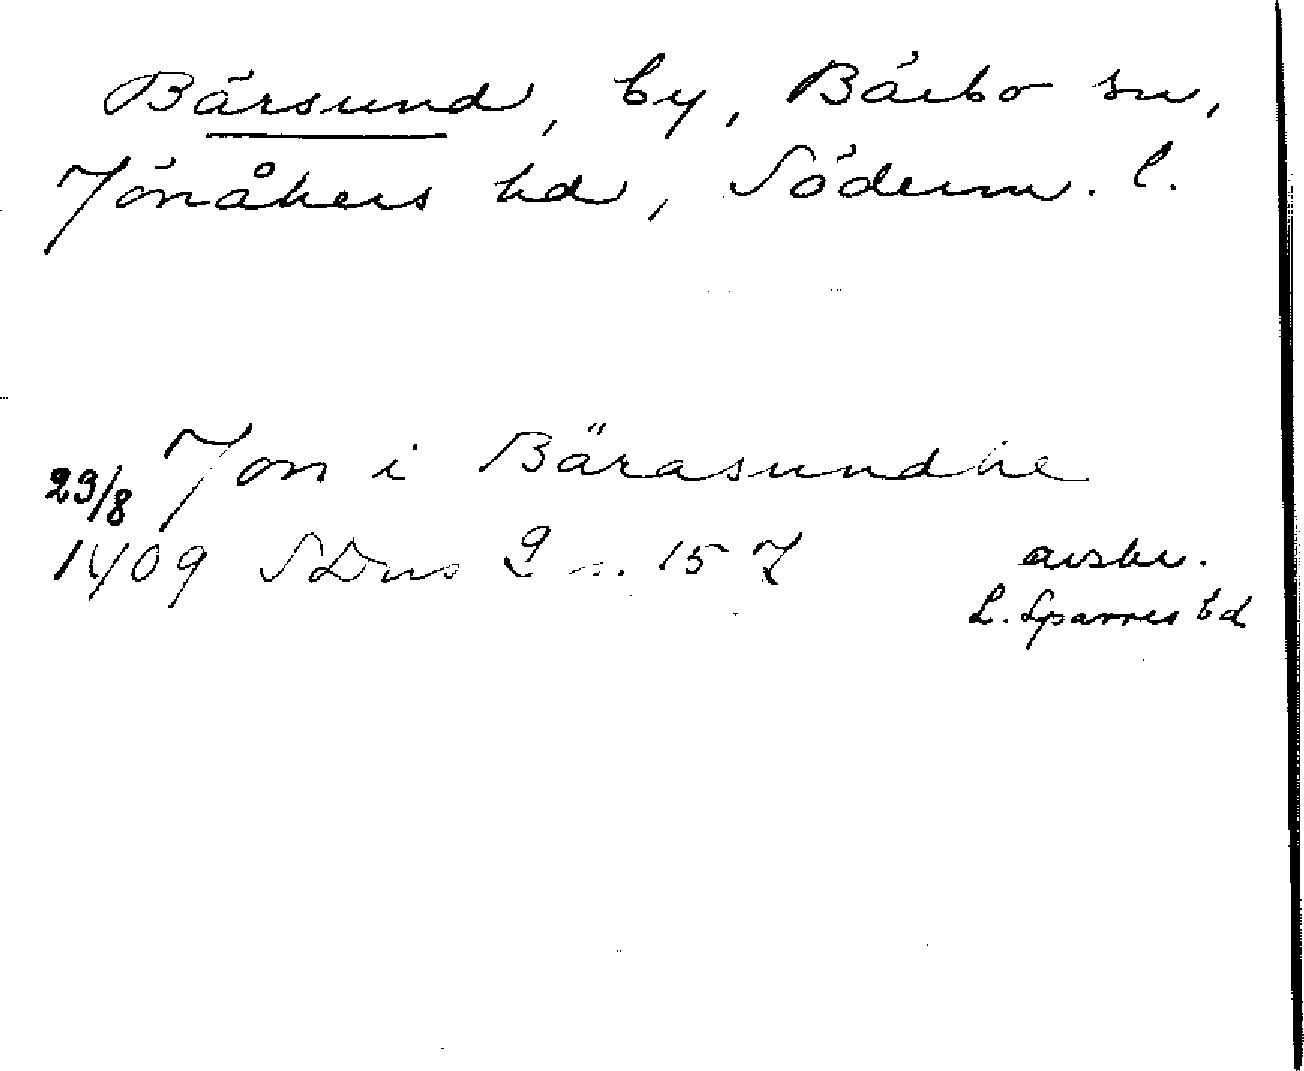 Bärsund, by, Bärbo sn,
Jönåkers hd, Söderm. l.
Jon i Bärasundhe
29/8
1409 SDns 2 s. 157
avskr.
L. Sparres bd